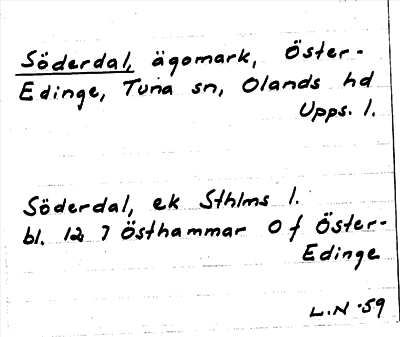 Söderdal, ägomark, Öster-
Edinge, Tuna sn, Olands hd
Upps. l.
Söderdal, ek Sthlms l.
bl. 12 7 Östhammar O f Öster-
Edinge
L.N -59